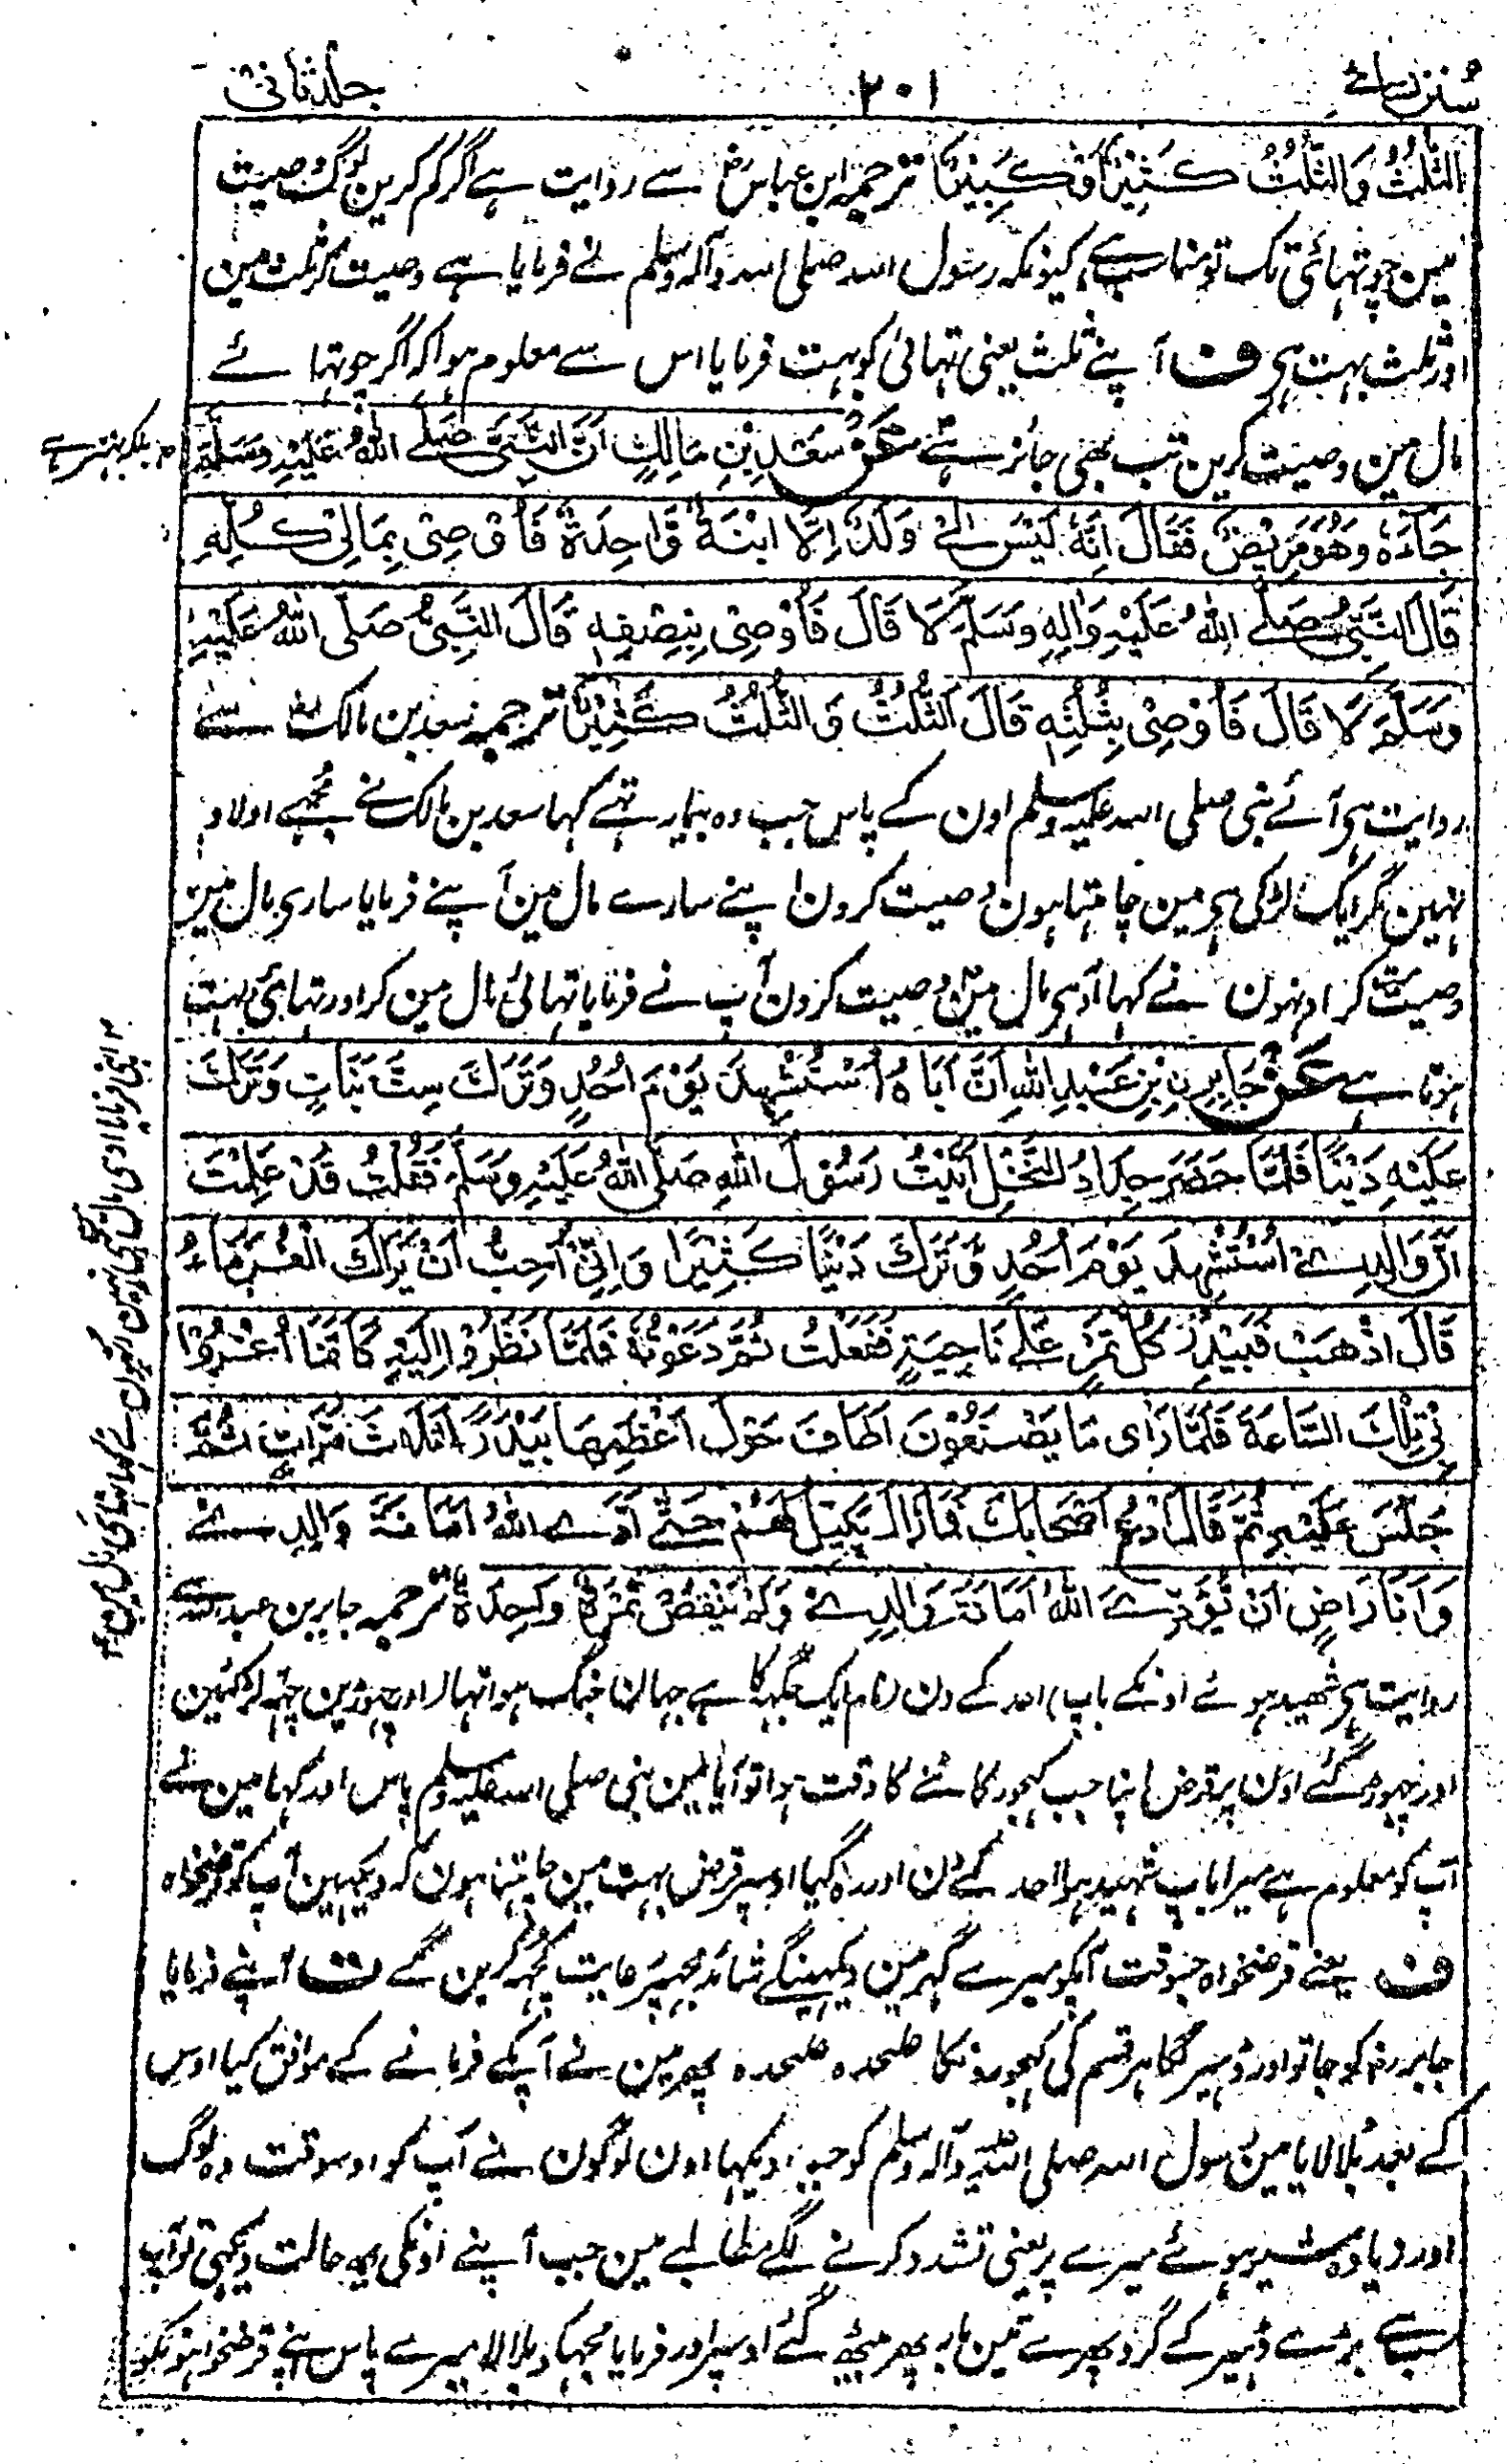 سُنن نسائے
۲۰۱
جلد ثانی
الثُّلُثُ وَالثُّلُثُ كَثِيْرٌ اَوْ كَبِيْرٌ ترجمہ ابن عباس رضہ سے روایت ہے اگر کم کرین لوگ وصیت
مین چوتہائی تک تو مناسب ہے کیونکہ رسول اللہ صلی اللہ وآلہ وسلم نے فرمایا ہے وصیت کر ثلث مین
اور ثلث بہت ہی ف آپنے ثلث یعنی تہائی کو بہت فرمایا اس سے معلوم ہوا کہ اگر چوتہائے
مال مین وصیت کرین تب بھی جائز ہے عَنْ سَعْدِ بْنِ مَالِكٍ اَنَّ النَّبِیَّ صَلَّے اللّٰهُ عَلَيْهِ وَسَلَّمَ
بلکہ بہتر ہے
جَآءَهٗ وَهُوَ مَرِيْضٌ فَقَالَ اِنَّهٗ لَيْسَ لِیْ وَلَدٌ اِلَّا ابْنَةٌ وَّاحِدَةٌ فَاُوْصِیْ بِمَالِیْ كُلِّهٖ
قَالَ النَّبِیُّ صَلَّے اللّٰهُ عَلَيْهِ وَاٰلِهٖ وَسَلَّمَ لَا قَالَ فَاُوْصِیْ بِنِصْفِهٖ قَالَ النَّبِیُّ صَلَّی اللّٰهُ عَلَيْهِ
وَسَلَّمَ لَا قَالَ فَاُوْصِیْ بِثُلُثِهٖ قَالَ الثُّلُثُ وَالثُّلُثُ كَثِيْرٌ ترجمہ سعد بن مالک رضہ سے
روایت ہی آئے نبی صلی اللہ علیہ وسلم اون کے پاس جب وہ بیمار تہے کہا سعد بن مالک نے مجھے اولاد
نہین مگر ایک لڑکی ہی مین چاہتا ہون وصیت کرون اپنے سارے مال مین آپنے فرمایا ساری مال مین
وصیت مت کر اونہون نے کہا آدہی مال مین وصیت کرون آپ نے فرمایا تہائی مال مین کر اور تہائی بہت
ہوتا ہے عَنْ جَابِرِ بْنِ عَبْدِ اللّٰهِ اَنَّ اَبَاهُ اُسْتُشْهِدَ يَوْمَ اُحُدٍ وَتَرَكَ سِتَّ بَنَاتٍ وَتَرَكَ
عَلَيْهِ دَيْنًا فَلَمَّا حَضَرَ جِدَادُ النَّخْلِ اَتَيْتُ رَسُوْلَ اللّٰهِ صَلَّی اللّٰهُ عَلَيْهِ وَسَلَّمَ فَقُلْتُ قَدْ عَلِمْتَ
اَنَّ وَالِدِیْ اُسْتُشْهِدَ يَوْمَ اُحُدٍ وَّتَرَكَ دَيْنًا كَثِيْرًا وَاِنِّیْ اُحِبُّ اَنْ يَّرَاكَ الْغُرَمَاءُ
قَالَ اذْهَبْ فَبَيْدِرْ كُلَّ تَمْرٍ عَلٰے نَاحِيَةٍ فَفَعَلْتُ ثُمَّ دَعَوْتُهٗ فَلَمَّا نَظَرُوْا اِلَيْهِ كَاَنَّمَا اُغْرُوْا
فِیْ تِلْكَ السَّاعَةِ فَلَمَّا رَاٰی مَا يَصْنَعُوْنَ اَطَافَ حَوْلَ اَعْظَمِهَا بَيْدَرًا ثَلَاثَ مَرَّاتٍ ثُمَّ
جَلَسَ عَلَيْهِ ثُمَّ قَالَ ادْعُ اَصْحَابَكَ فَمَا زَالَ يَكِيْلُ لَهُمْ حَتّٰے اَدّٰے اللّٰهُ اَمَانَةَ وَالِدِیْ
وَاَنَا رَاضٍ اَنْ يُّؤَدِّیَ اللّٰهُ اَمَانَةَ وَالِدِیْ وَلَمْ يَنْقُصْ تَمْرَةً وَاحِدَةً ترجمہ جابر بن عبداللہ سے
روایت ہی شہید ہوئے اونکے باپ احد کے دن (نام ایک جگہہ کا ہے جہان جنگ ہوا تہا) اور چہوڑین چہہ لڑکیین
اور چہوڑ گئے اون پر قرض اپنا جب کہجور کاٹنے کا وقت ہوا تو آیا مین نبی صلی اللہ علیہ وسلم پاس اور کہا مین نے
آپ کو معلوم ہے میرا باپ شہید ہوا احد کے دن اور رہ گیا اوسپر قرض بہت مین چاہتا ہون کہ دیکہین آپ کو قرضخواہ
ف یعنے قرضخواہ جسوقت آپکو میرے گہر مین دیکہینگے شائد مجہپر رعایت کچہہ کرین گے ت آپنے فرمایا
جابر رضہ کو جا تو اور ڈہیر لگا ہر قسم کی کہجورونکا علحدہ علحدہ پھر مین نے آپکے فرمانے کے موافق کیا اوس
کے بعد بُلا لایا مین رسول اللہ صلی اللہ علیہ وآلہ وسلم کو جب دیکہا اون لوگون نے آپ کو اوسوقت وہ لوگ
اور زیادہ شیر ہوئے میرے پر یعنی تشدد کرنے لگے مطالبے مین جب آپنے اونکی یہ حالت دیکہی تو آپ
سب سے بڑے ڈہیر کے گرد پھرے تین بار پھر بیٹھ گئے اوسپر اور فرمایا مجہکو بلا لا میرے پاس اپنے قرضخواہونکو